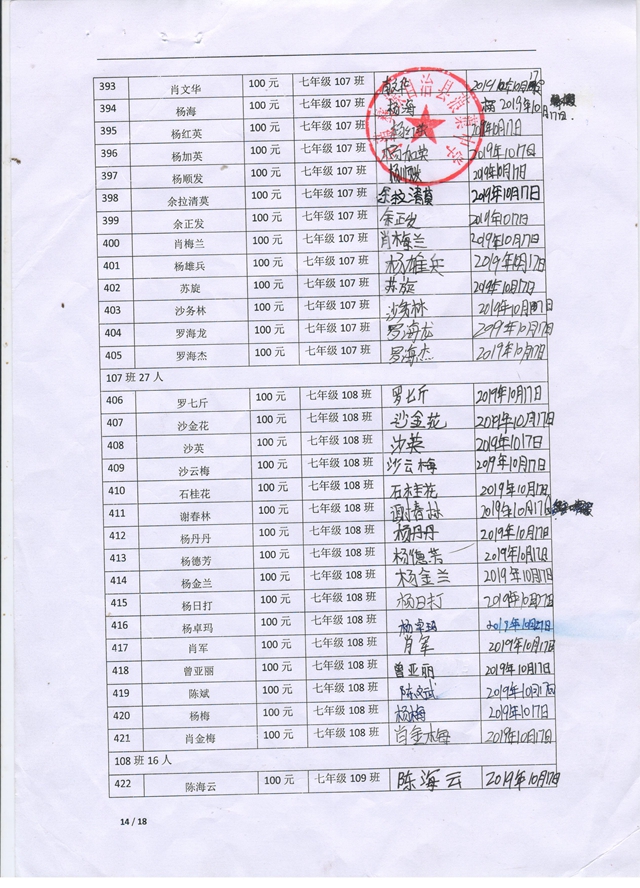 393 肖文华 100元 七年级 107 班 肖文华
394 杨海 100元 七年级 107 班 杨海 2019年10月17日
395 杨红英 100元 七年级 107 班 杨红英
396 杨加英 100元 七年级 107 班 杨加英 2019年10月17日
397 杨顺发 100元 七年级 107 班 杨顺发 2019年10月17日
398 余拉清莫 100元 七年级 107 班 余拉清莫 2019年10月17日
399 余正发 100元 七年级 107 班 余正发 2019年10月17日
400 肖梅兰 100元 七年级 107 班 肖梅兰 2019年10月17日
401 杨雄兵 100元 七年级 107 班 杨雄兵 2019年10月17日
402 苏旋 100元 七年级 107 班 苏旋 2019年10月17日
403 沙务林 100元 七年级 107 班 沙务林 2019年10月17日
404 罗海龙 100元 七年级 107 班 罗海龙 2019年10月17日
405 罗海杰 100元 七年级 107 班 罗海杰 2019年10月17日
107 班 27 人
406 罗七斤 100元 七年级 108 班 罗七斤 2019年10月17日
407 沙金花 100元 七年级 108 班 沙金花 2019年10月17日
408 沙英 100元 七年级 108 班 沙英 2019年10月17日
409 沙云梅 100元 七年级 108 班 沙云梅 2019年10月17日
410 石桂花 100元 七年级 108 班 石桂花 2019年10月17日
411 谢春林 100元 七年级 108 班 谢春林 2019年10月17日
412 杨丹丹 100元 七年级 108 班 杨丹丹 2019年10月17日
413 杨德芳 100元 七年级 108 班 杨德芳 2019年10月17日
414 杨金兰 100元 七年级 108 班 杨金兰 2019年10月17日
415 杨日打 100元 七年级 108 班 杨日打 2019年10月17日
416 杨卓玛 100元 七年级 108 班 杨卓玛
417 肖军 100元 七年级 108 班 肖军 2019年10月17日
418 曾亚丽 100元 七年级 108 班 曾亚丽 2019年10月17日
419 陈斌 100元 七年级 108 班 陈斌 2019年10月17日
420 杨梅 100元 七年级 108 班 杨梅 2019年10月17日
421 肖金梅 100元 七年级 108 班 肖金梅 2019年10月17日
108 班 16 人
422 陈海云 100元 七年级 109 班 陈海云 2019年10月17日
14 / 18